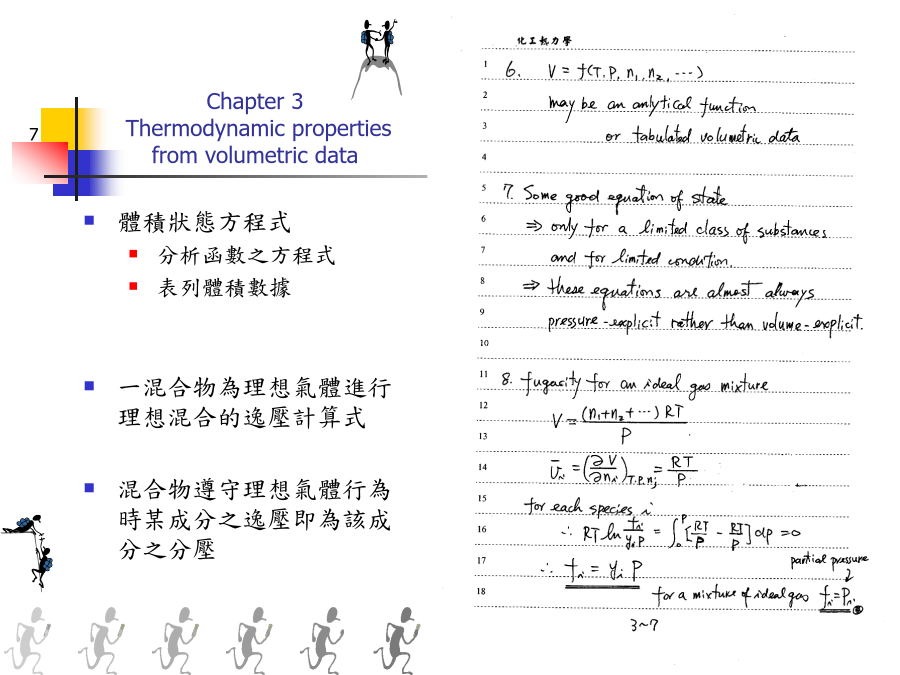 7
Chapter 3
Thermodynamic properties
from volumetric data
體積狀態方程式
分析函數之方程式
表列體積數據
一混合物為理想氣體進行
理想混合的逸壓計算式
混合物遵守理想氣體行為
時某成分之逸壓即為該成
分之分壓
化工熱力學
1 6. V = f(T, P, n₁, n₂, ⋯)
2 may be an anlytical function
3 or tabulated volumetric data
4
5 7. Some good equation of state
6 ⇒ only for a limited class of substances
7 and for limited condition.
8 ⇒ these equations are almost always
9 pressure-explicit rather than volume-explicit.
10
11 8. fugacity for an ideal gas mixture
12 V = (n₁+n₂+⋯) RT / P
13
14 v̄ᵢ = (∂V/∂nᵢ)T.P.nⱼ = RT/P
15 for each species i
16 ∴ RT ln fᵢ/yᵢP = ∫₀ᴾ [RT/P − RT/P] dP = 0
17 ∴ fᵢ = yᵢ P partial pressure
18 for a mixture of ideal gas fᵢ = Pᵢ
3~7